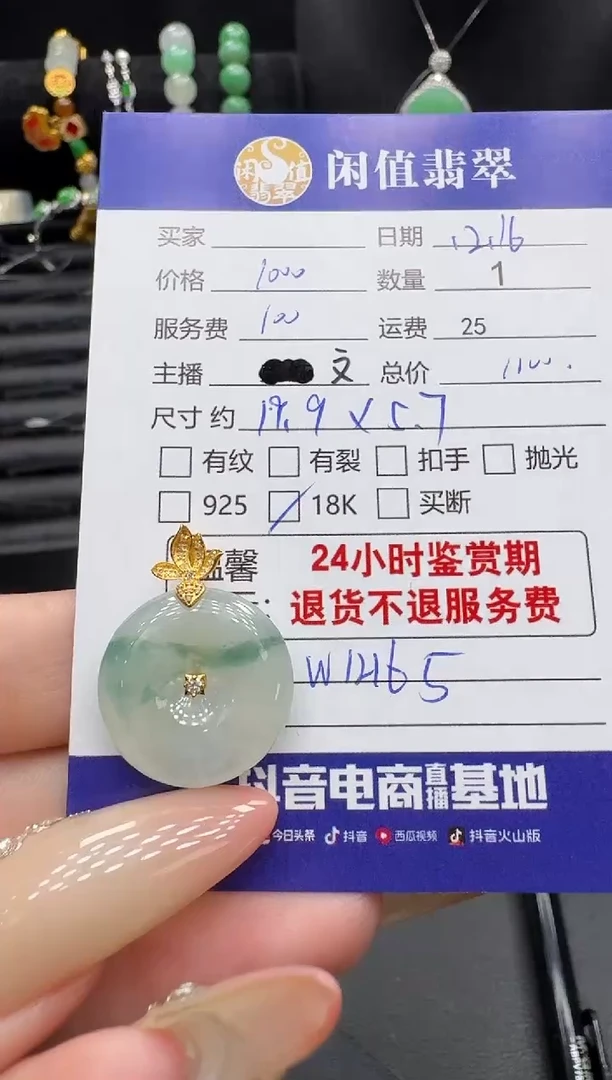 闲值翡翠
闲值翡翠
买家 日期 12.16
价格 1000 数量 1
服务费 100 运费 25
主播 文 总价 1100.
尺寸 约 19.9 × 5.7
有纹 有裂 扣手 抛光
925 18K 买断
馨 24小时鉴赏期
: 退货不退服务费
W12165
抖音电商直播基地
今日头条 抖音 西瓜视频 抖音火山版